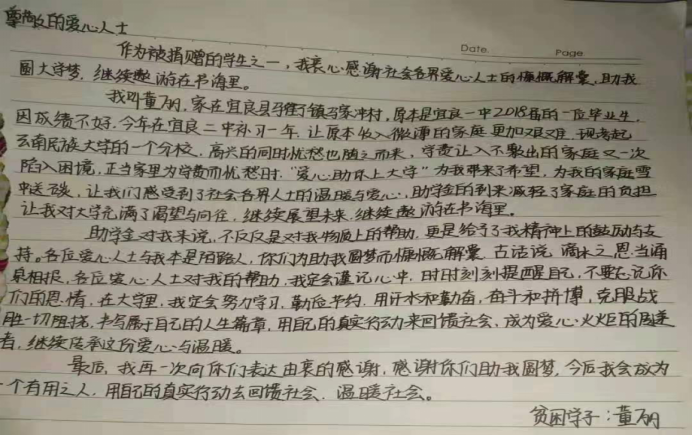 尊敬的爱心人士
Date. Page.
作为被捐赠的学生之一，我衷心感谢社会各界爱心人士的慷慨解囊，助我
圆大学梦，继续遨游在书海里。
我叫董丽，家在宜良县马街镇马家冲村，原本是宜良一中2018届的一位毕业生，
因成绩不好，今年在宜良二中补习一年，让原本收入微薄的家庭更加艰难，现考起
云南民族大学的一个分校，高兴的同时忧愁也随之而来，学费让入不敷出的家庭又一次
陷入困境，正当家里为学费而忧愁时，“爱心助你上大学”为我带来了希望，为我的家庭雪
中送炭，让我们感受到了社会各界人士的温暖与爱心，助学金的到来减轻了家庭的负担
让我对大学充满了渴望与向往，继续展望未来，继续遨游在书海里。
助学金对我来说，不仅仅是对我物质上的帮助，更是给予了我精神上的鼓励与支
持。各位爱心人士与我本是陌路人，你们为助我圆梦而慷慨解囊，古话说，滴水之恩当涌
泉相报，各位爱心人士对我的帮助，我定会谨记心中，时时刻刻提醒自己，不要忘记你
们的恩情，在大学里，我定会努力学习，勤俭节约，用汗水和勤奋，奋斗和拼博，克服战
胜一切阻扰，书写属于自己的人生篇章，用自己的真实行动来回馈社会，成为爱心火炬的传递
者，继续传承这份爱心与温暖。
最后，我再一次向你们表达由衷的感谢，感谢你们助我圆梦，今后我会成为
一个有用之人，用自己的真实行动去回馈社会，温暖社会。
贫困学子：董丽